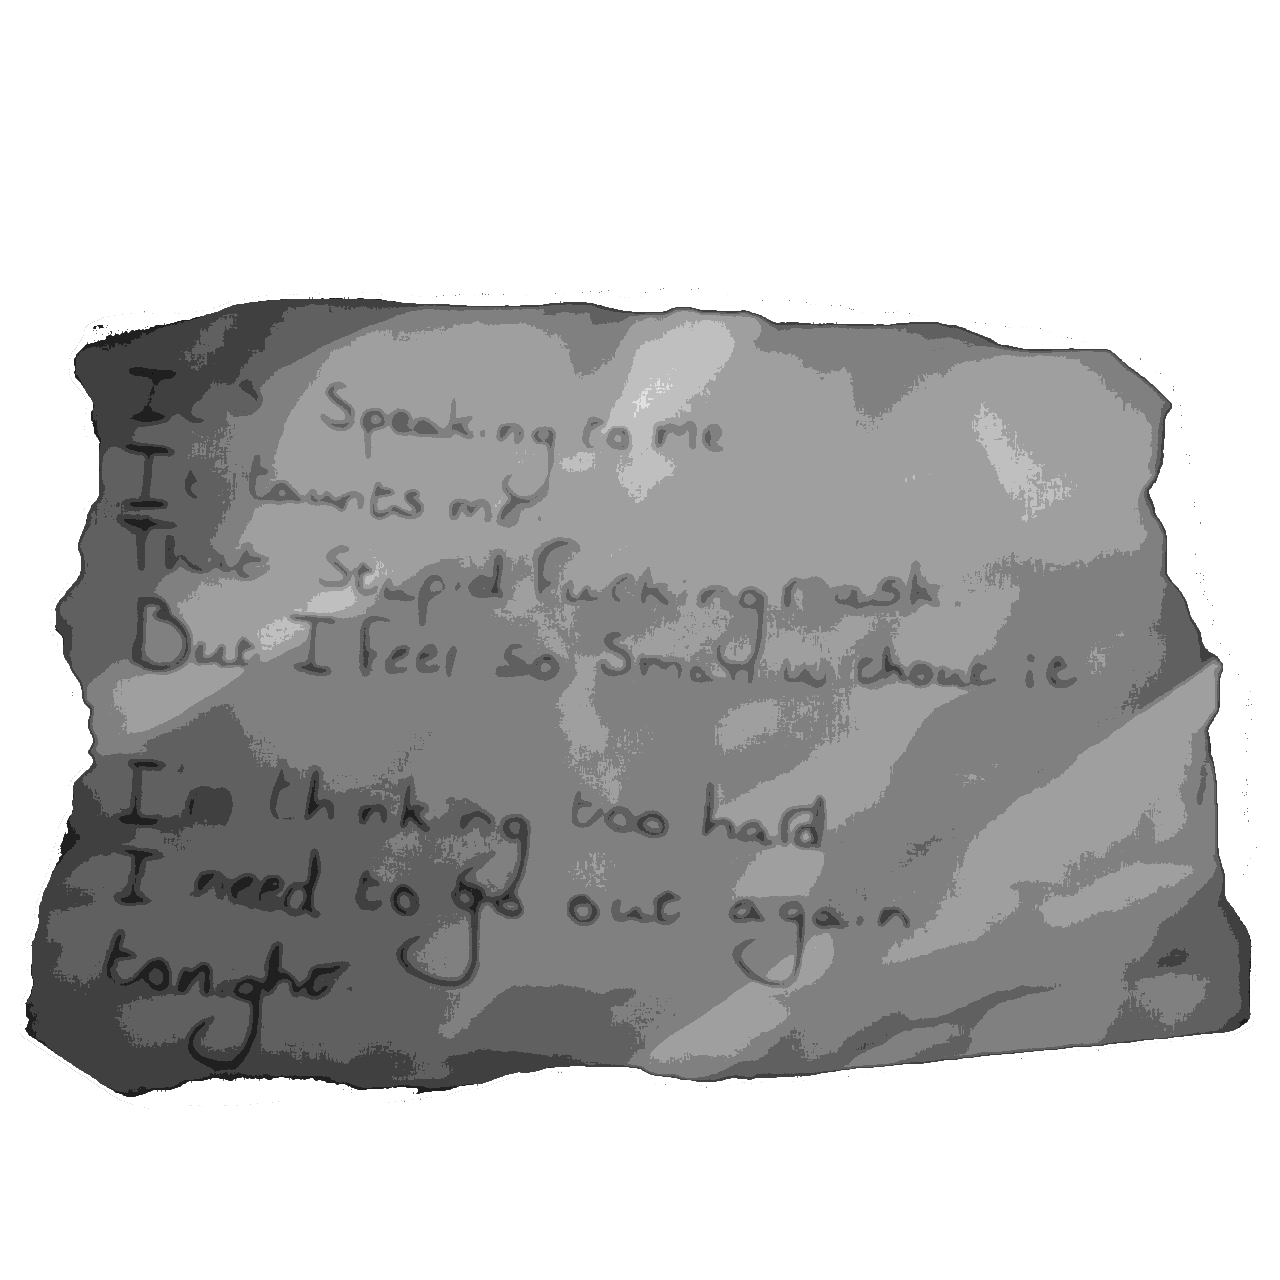 It's Speaking to me
It taunts me.
That Stupid fucking mask.
But I feel so Small without it
I'm thinking too hard
I need to go out again
tonight.